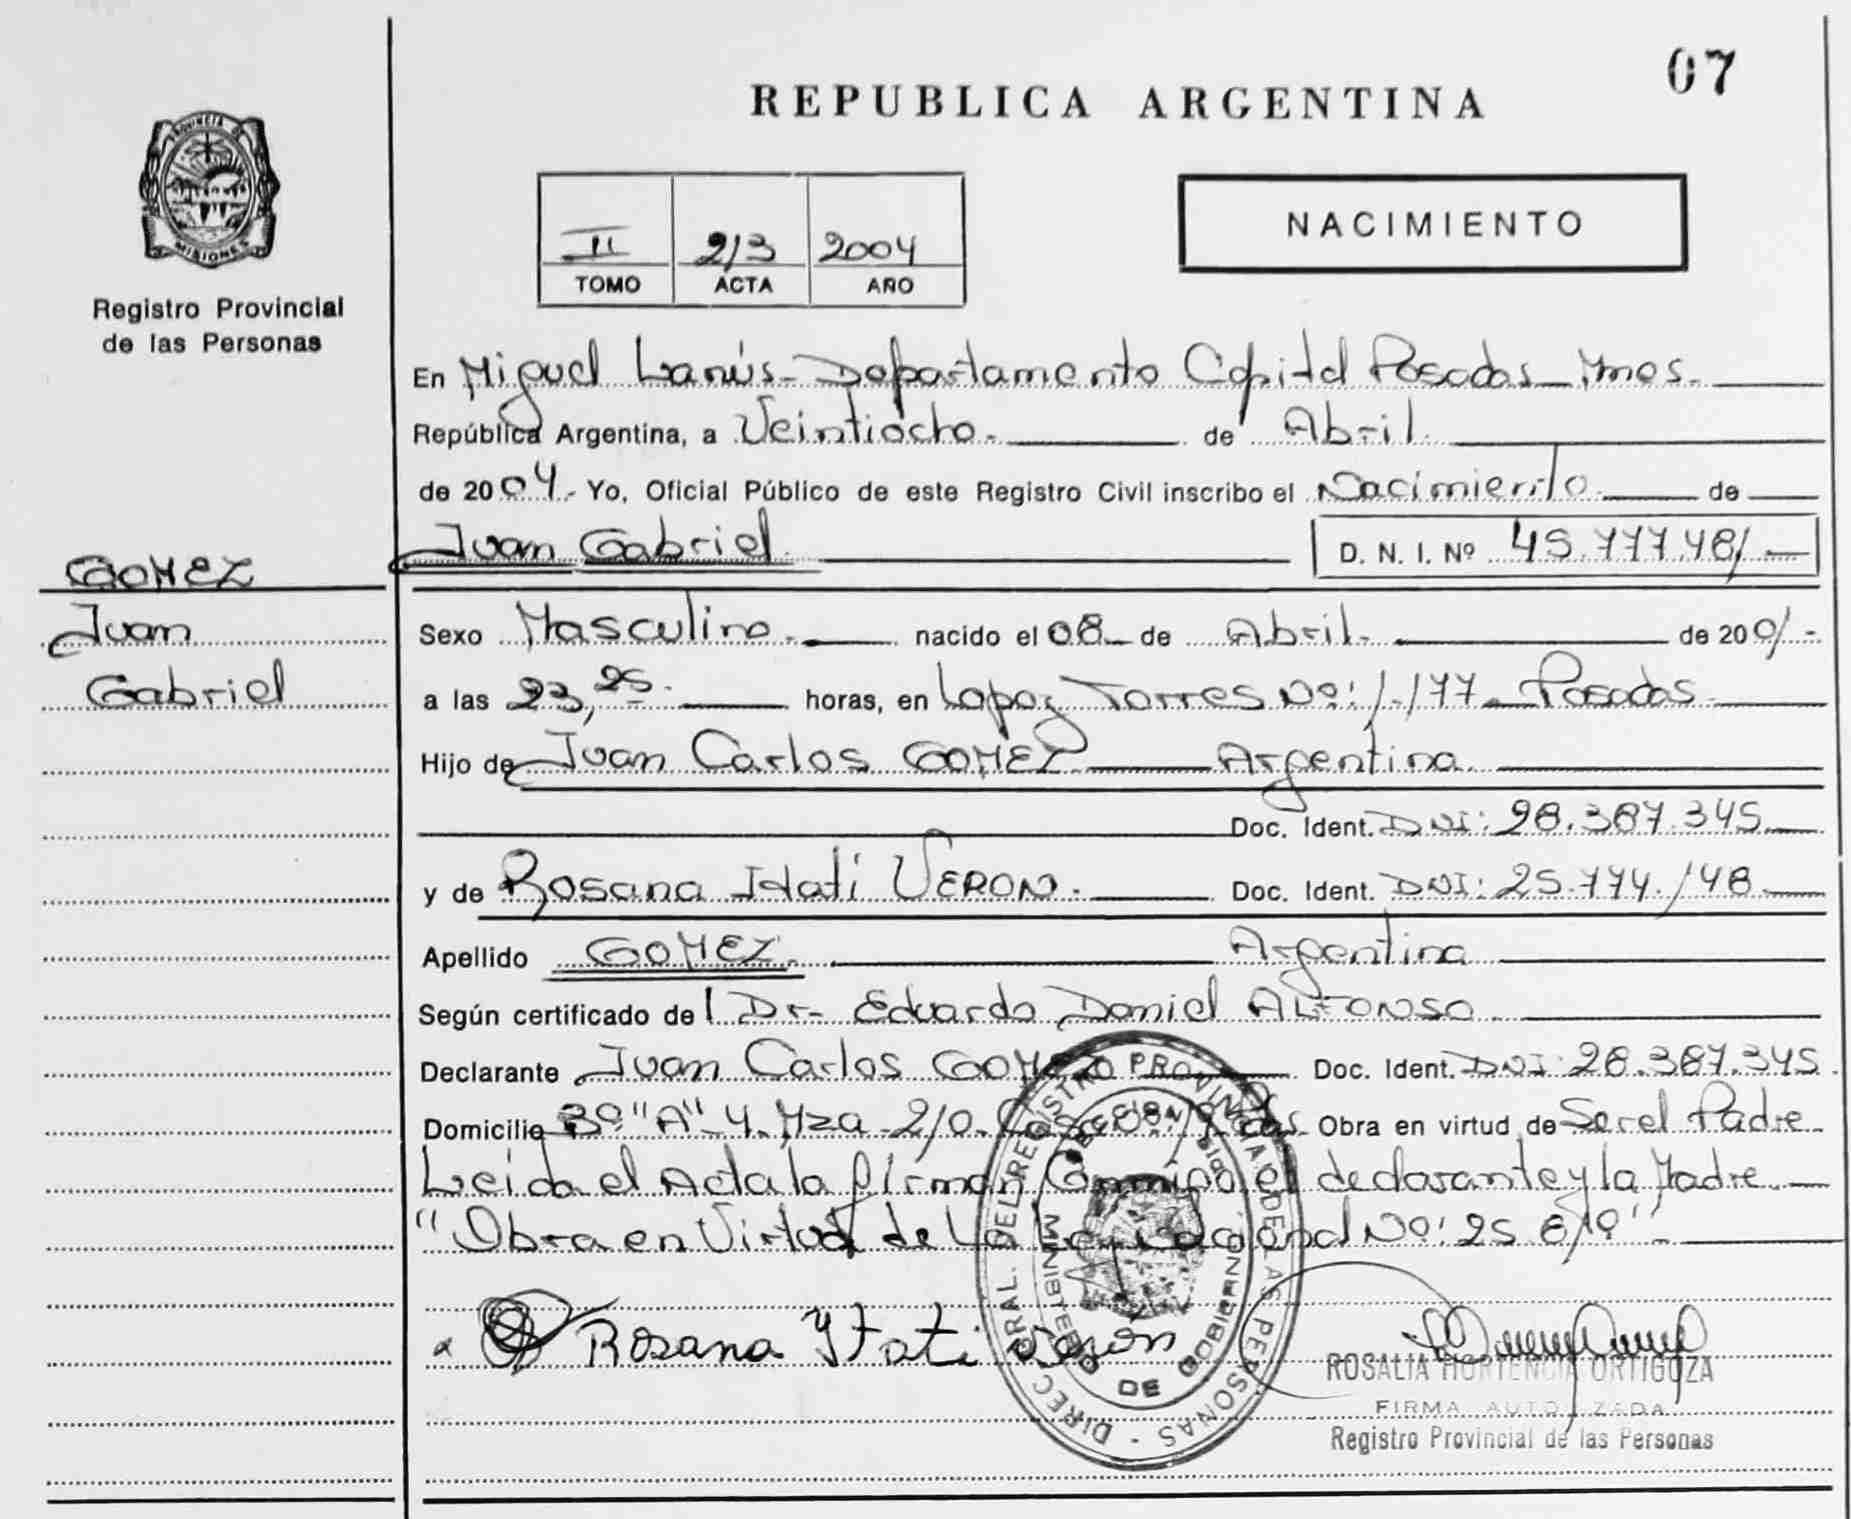 07
REPUBLICA ARGENTINA
PROVINCIA DE
MISIONES
Registro Provincial
de las Personas
II 213 2004
TOMO ACTA AÑO
NACIMIENTO
En Miguel Lanús - Departamento Capital Posadas Mnes.
República Argentina, a Veintiocho de Abril
de 2004 - Yo, Oficial Público de este Registro Civil inscribo el Nacimiento de
Juan Gabriel D. N. I. Nº 45.777.481
GOMEZ
Juan
Gabriel
Sexo Masculino nacido el 08 de Abril de 2001
a las 23,25 horas, en Lopez Torres No: 1.177 - Posadas
Hijo de Juan Carlos GOMEZ Argentina
Doc. Ident. DNI: 28.387.345
y de Rosana Itati VERON Doc. Ident. DNI: 25.774.148
Apellido GOMEZ Argentina
Según certificado del Dr. Eduardo Daniel ALFONSO
Declarante Juan Carlos GOMEZ Doc. Ident. DNI 28.387.345
Domicilio Bº "A" 4. Mza 210. Casa Pdas Obra en virtud de Ser el Padre
Leida el Acta la firman Conmigo el declarante y la Madre
"Obra en Virtud de La Ley Nacional No: 25.819"
Rosana Ytati Veron
DIREC. GRAL. DEL REGISTRO PROVINCIAL DE LAS PERSONAS
MINISTERIO DE GOBIERNO
ROSALIA HORTENCIA ORTIGOZA
FIRMA AUTORIZADA
Registro Provincial de las Personas